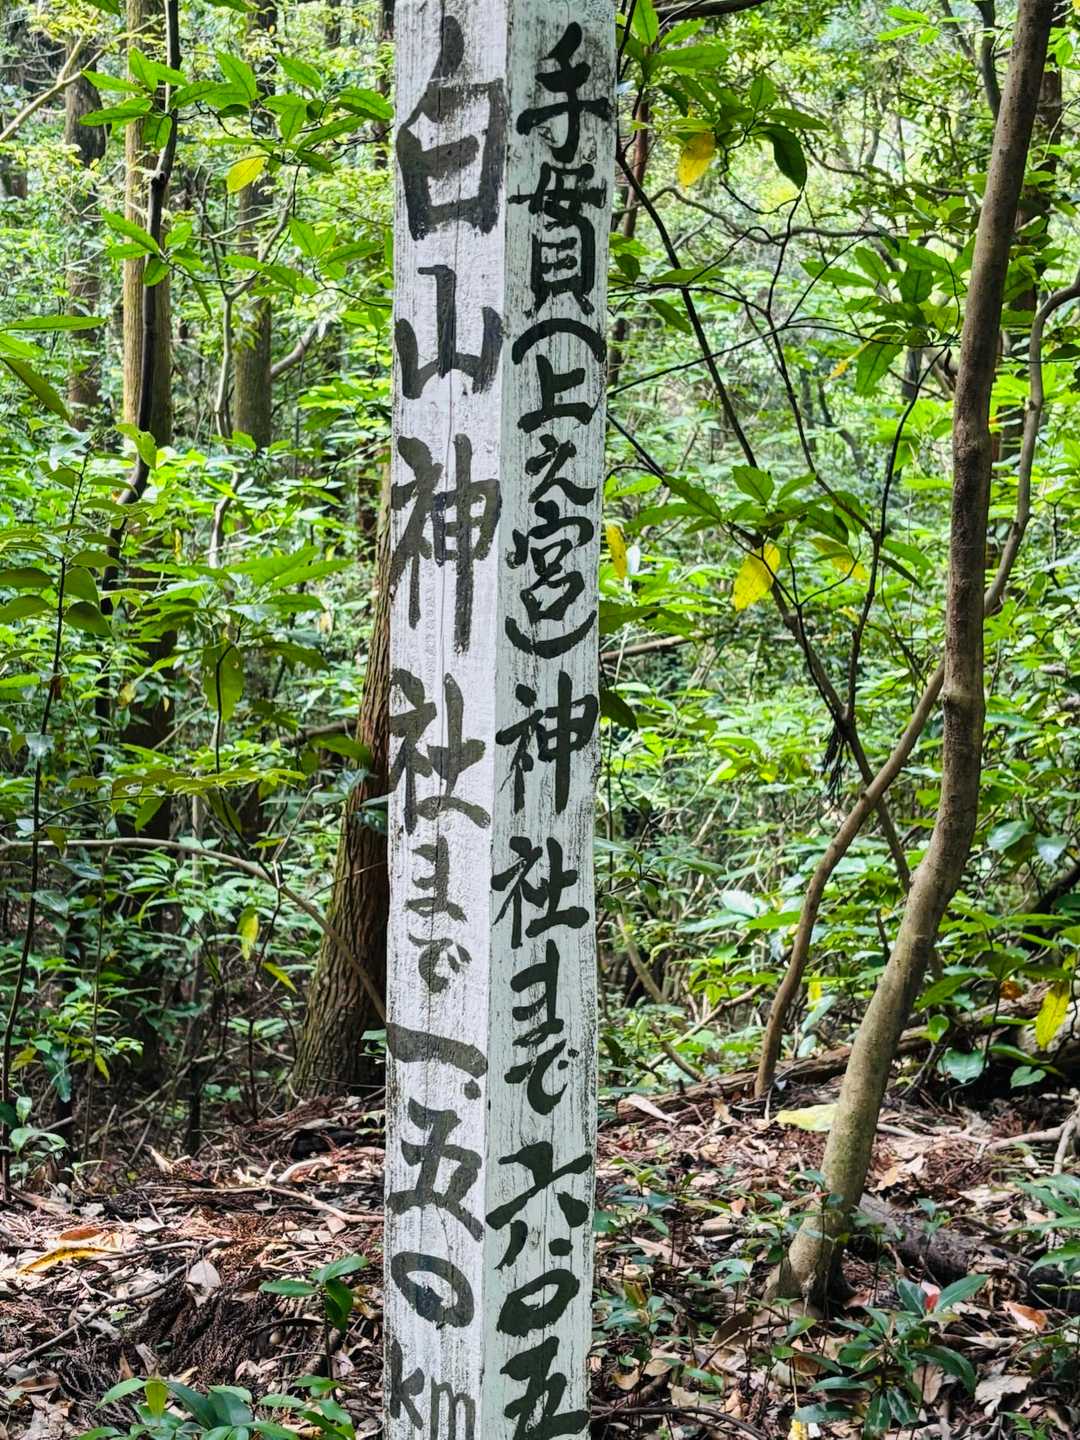 手貫(上之宮)神社まで六.〇五
白山神社まで一.五〇km